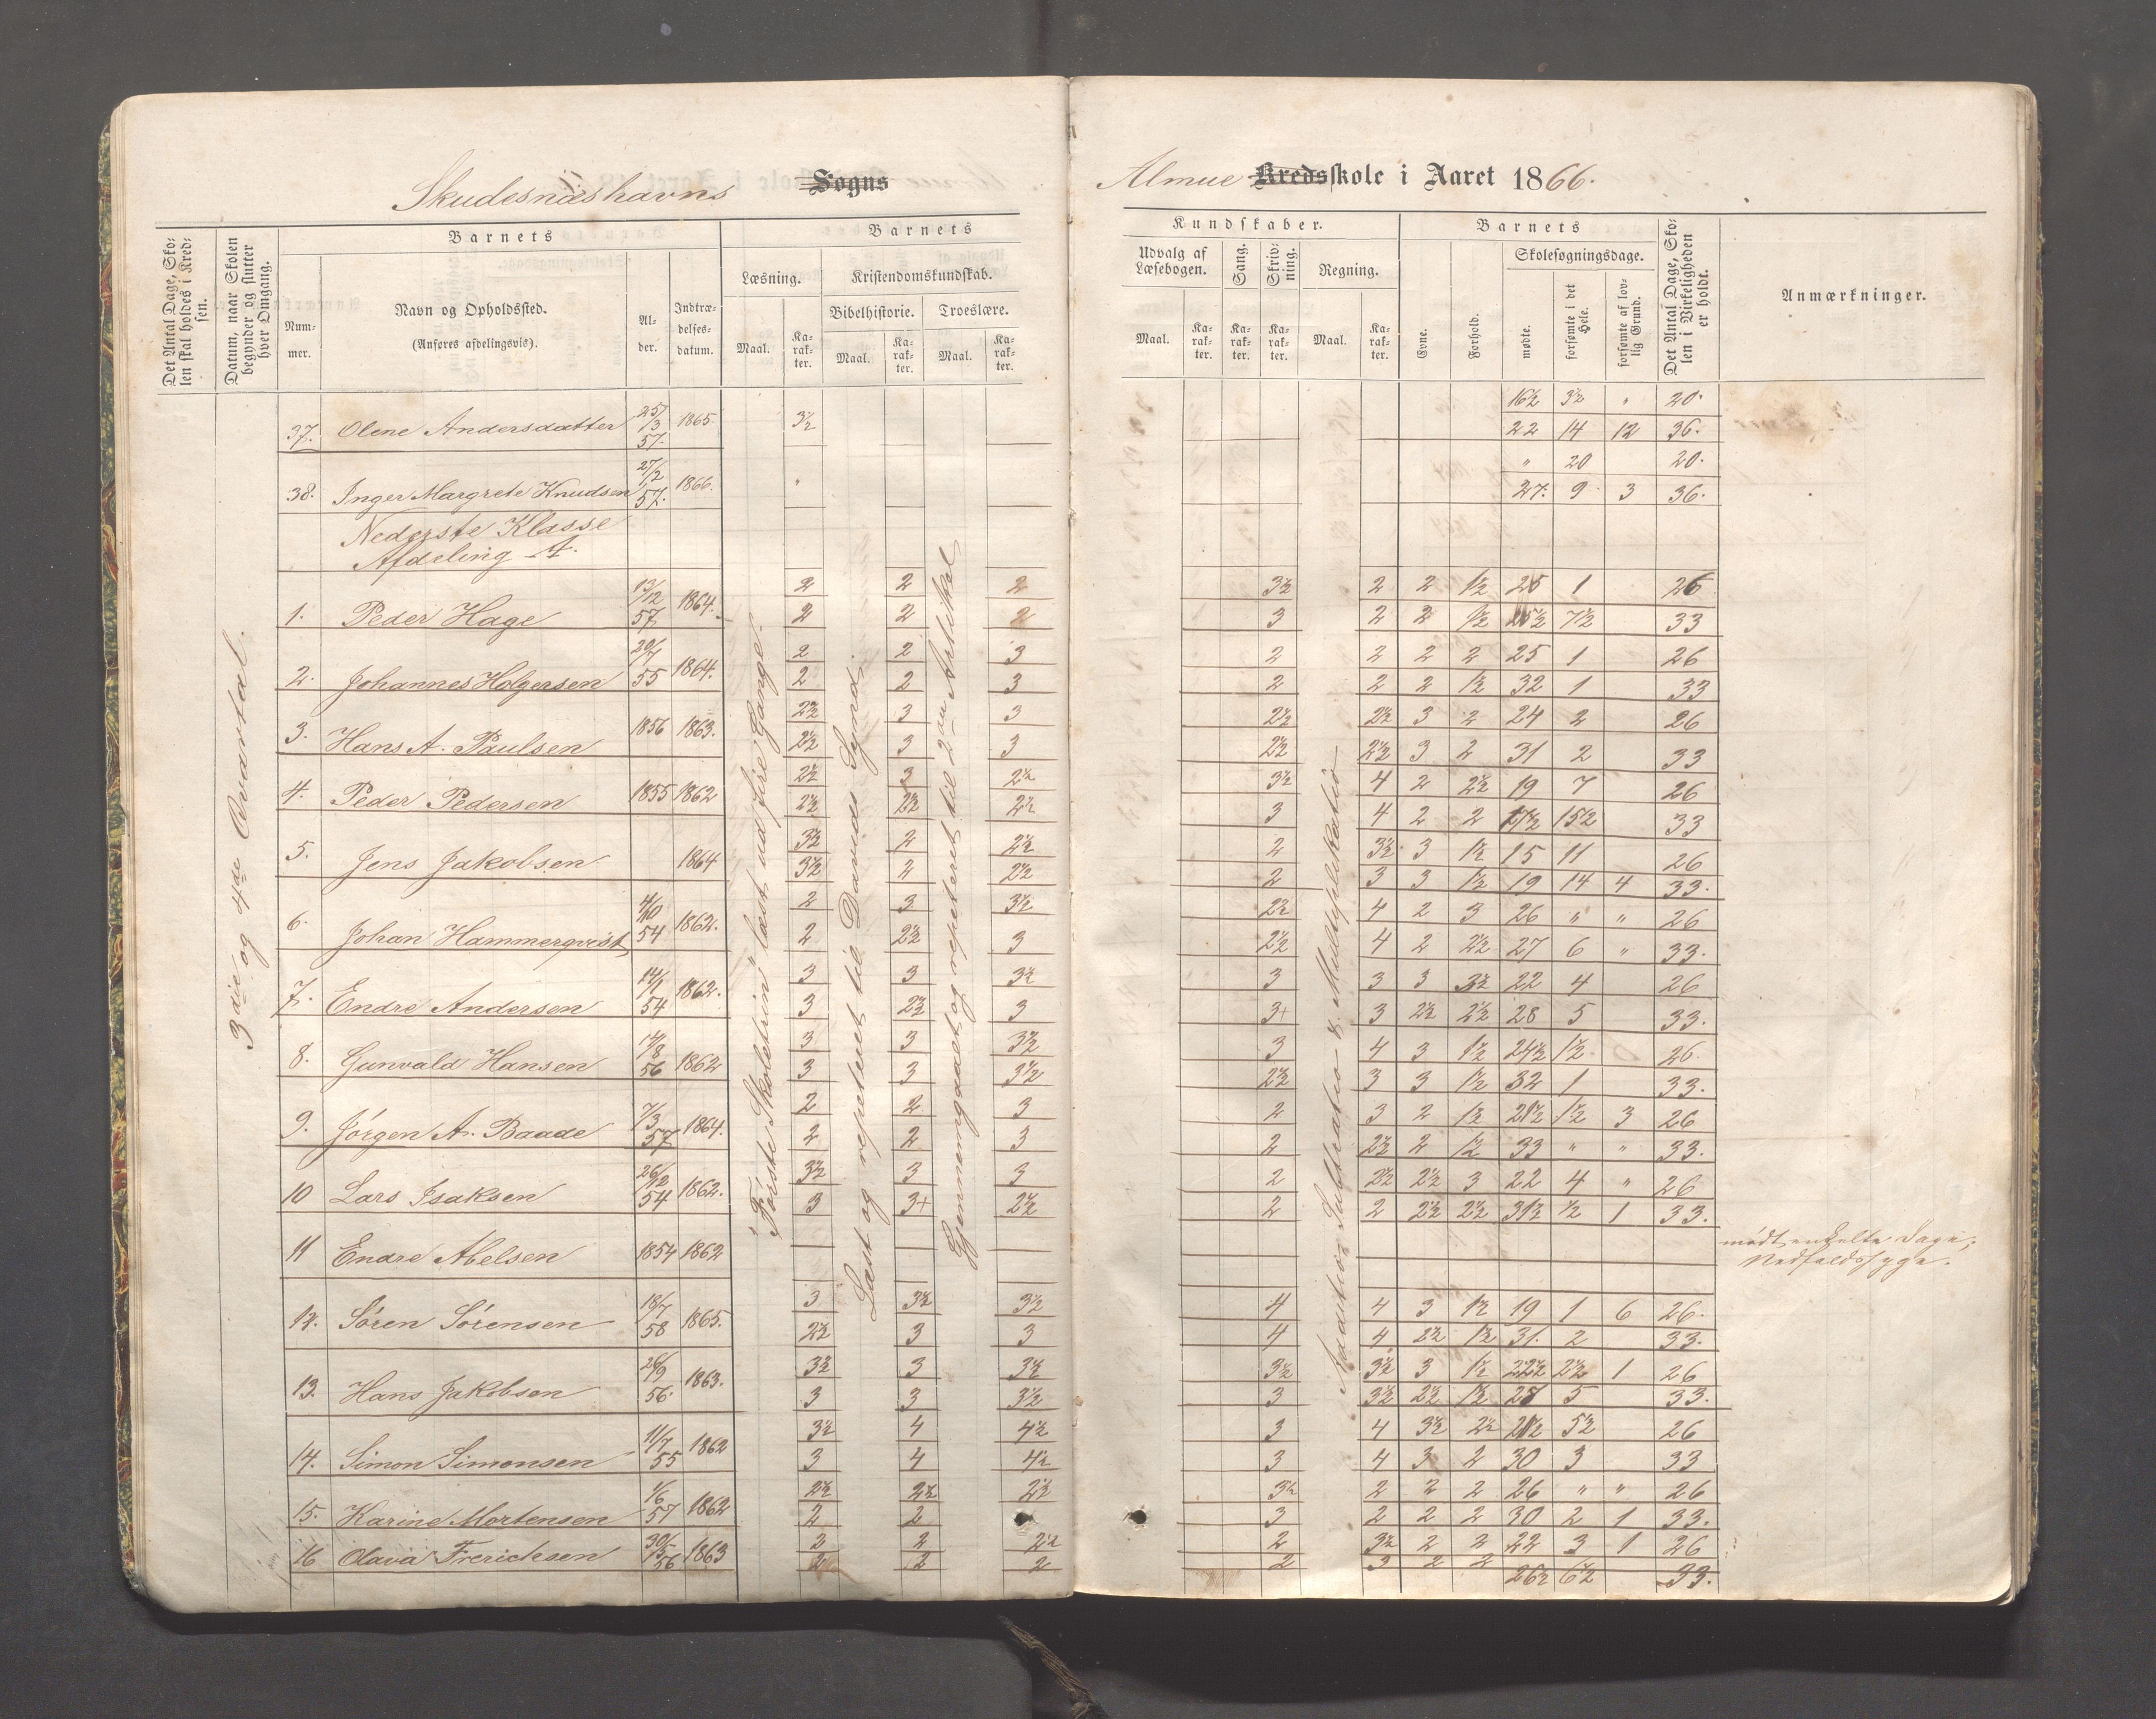 Skudesnæshavns Sogns
Almue Kredsskole i Aaret 1866.
Det Antal Dage, Skolen skal holdes i Kredsen.
Datum, naar Skolen begynder og slutter hver Omgang.
Barnets
Nummer.
Navn og Opholdssted.
(Anføres afdelingsvis).
Alder.
Indtrædelsesdatum.
Barnets
Læsning.
Maal.
Karakter.
Kristendomskundskab.
Bibelhistorie.
Maal.
Karakter.
Troeslære.
Maal.
Karakter.
Kundskaber.
Udvalg af Læsebogen.
Maal.
Karakter.
Sang.
Karakter.
Skrivning.
Karakter.
Regning.
Maal.
Karakter.
Barnets
Evne.
Forhold.
Skolesøgningsdage.
mødte.
forsømte i det Hele.
forsømte af lovlig Grund.
Det Antal Dage, Skolen i Virkeligheden er holdt.
Anmærkninger.
3die og 4de Qvartal.
37. Olene Andersdatter 25/3 57. 1865 3½
16½ 3½ " 20.
22 14 12 36.
38. Inger Margrete Knudsen 27/2 57. 1866. "
" 20 20.
27. 9 3 36.
Nederste Klasse
Afdeling A.
"Første Skoletrin" læst ud fire Gange.
Læst og repeteret til Davids Synd.
Gjennemgaaet og repeteret til 2den Artikel
1. Peder Hage 13/12 57 1864.
2 2 2 3½ 2 2 1½ 25 1 26
2 2 2 3 2 2 1½ 25½ 7½ 33
2. Johannes Holgersen 20/7 55 1864.
2 2 3 2 2 2 2 25 1 26
2 2 3 2 2 2 1½ 32 1 33
3. Hans A. Paulsen 1856 1863.
2½ 3 3 2½ 2½ 3 2 24 2 26
2½ 3 3 2½ 2½ 3 2 31 2 33
4. Peder Pedersen 1855 1862
2½ 3 2½ 3½ 4 2 2½ 19 7 26
2½ 2½ 2½ 3 4 2 2 17½ 15½ 33
5. Jens Jakobsen 1864
3½ 2 2½ 2 3½ 3 1½ 15 11 26
3½ 2 2½ 2 3 3 1½ 19 14 4 33.
6. Johan Hammerqvist 4/10 54 1862.
2 3 3½ 2½ 4 2 3 26 " " 26
2 2½ 3 2½ 4 2 2½ 27 6 " 33.
7. Endre Andersen 14/1 54 1862.
3 3 3½ 3 3 3 3½ 22 4 26
3 2½ 3 3+ 3 2½ 2½ 28 5 33.
8. Gunvald Hansen 14/8 56 1862
3 3 3½ 3 4 3 1½ 24½ 1½ 26.
3 3 3½ 2½ 3 3 1½ 32 1 33.
9. Jørgen A. Baade 7/3 57 1864.
2 2 3 2 3 2 1½ 21½ 1½ 3 26
2 2 3 2 2½ 2 1½ 33 " " 33.
10 Lars Isaksen 26/12 54 1862.
3½ 3 3 2 2½ 2½ 3 22 4 " 26
3 3+ 2½ 2 2 2½ 2½ 31½ ½ 1 33.
11 Endre Abelsen 1854 1862
mødt enkelte Dage;
Nedfaldssyge.
12. Søren Sørensen 18/7 58 1865.
3 3½ 3½ 4 4 3 1½ 19 1 6 26.
2½ 3 3 4 4 2½ 1½ 31. 2 33.
13. Hans Jakobsen 26/9 56. 1863.
3½ 3 3½ 3½ 3½ 3 1½ 22½ 2½ 1 26
3 3 3½ 3 3½ 2½ 1½ 28 5 33.
14. Simon Simonsen 11/7 55 1862
3½ 4 4½ 3 4 3½ 2½ 21½ 5½ 26
3 4 4½ 3 4 3 2 30 3 33
15. Karine Mortensen 1/6 57 1862
2½ 2½ 2½ 3½ 2 2 2 26 " " 26
2 2 3 2 2 2 30 2 1 33.
16 Olava Frerichsen 30/5 56 1863
2 2 2½ 2 3½ 2 2 22 3 1 26
2 2 2 2 3 2 2 26½ 6½ 33.